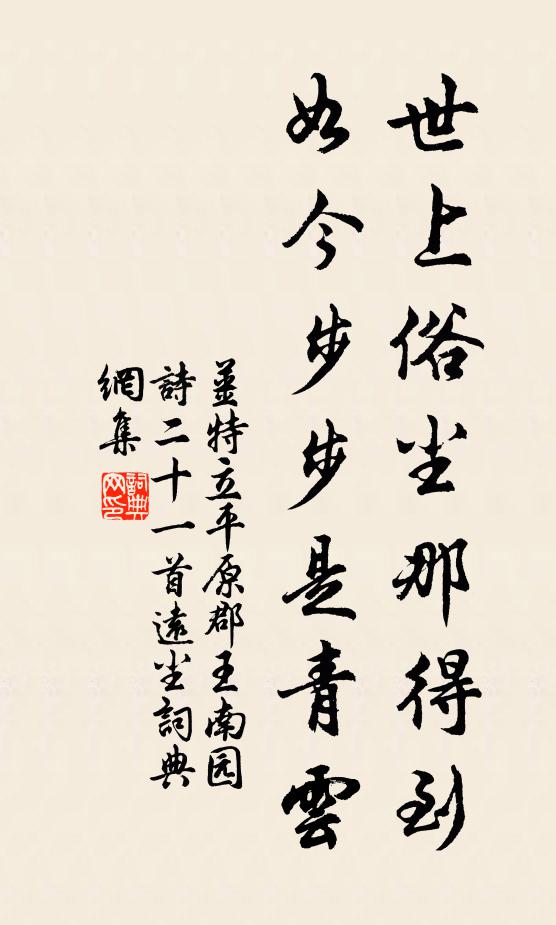 世上俗尘那得到
如今步步是青雲
薑特立平原郡王南园
詩二十一首遠尘詞典
網集
詞典
网印